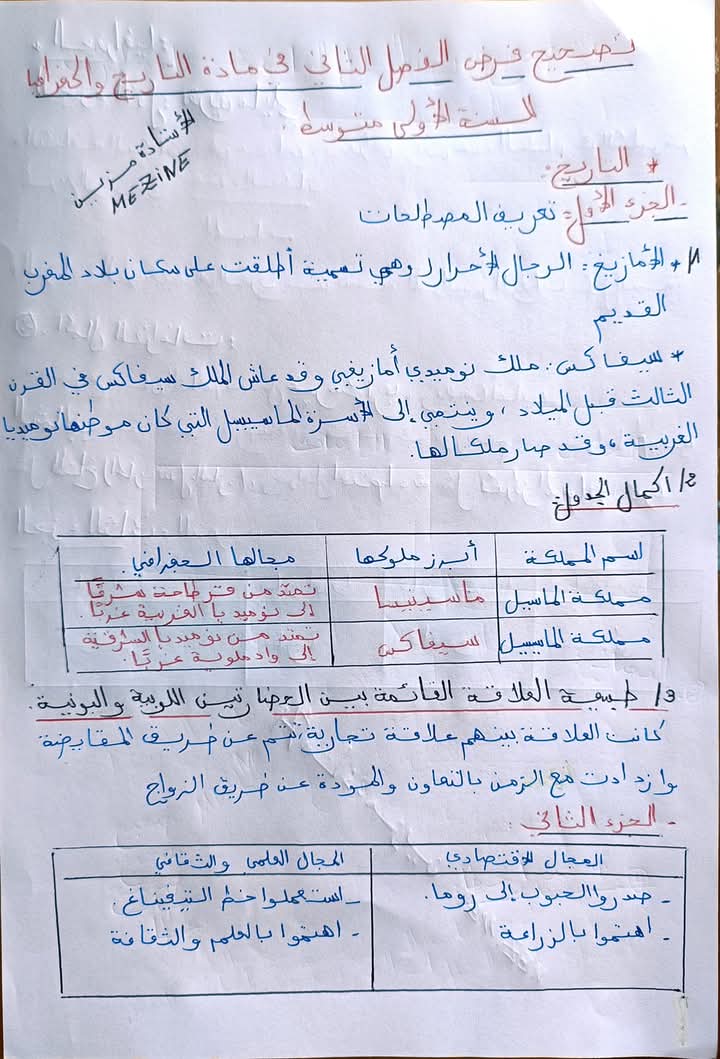 تصحيح فرض الفصل الثاني في مادة التاريخ والجغرافيا
السنة الأولى متوسط.
الأستاذة مزين
MEZINE
* التاريخ:
- الجزء الأول: تعريف المصطلحات
1/ * الأمازيغ: الرجال الأحرار وهي تسمية أطلقت على سكان بلاد المغرب
القديم
* سيفاكس: ملك نوميدي أمازيغي وقد عاش الملك سيفاكس في القرن
الثالث قبل الميلاد، وينتمي إلى الأسرة الماسيسل التي كان موطنها نوميديا
الغربية، وقد صار ملكا لها.
2/ اكمال الجدول:
اسم المملكة أبرز ملوكها مجالها الجغرافي.
مملكة الماسيل ماسينيسا تمتد من قرطاجة شرقًا
إلى نوميديا الغربية غربًا.
مملكة الماسيسيل سيفاكس تمتد من نوميديا الشرقية
إلى واد ملوية غربًا.
3/ طبيعة العلاقة القائمة بين الحضارتين اللوبية والبونية.
كانت العلاقة بينهم علاقة تجارية، تتم عن طريق المقايضة
وازدادت مع الزمن بالتعاون والمودة عن طريق الزواج
- الجزء الثاني:
المجال الاقتصادي المجال العلمي والثقافي
- صدروا الحبوب إلى روما. - استعملوا خط التيفيناغ.
- اهتموا بالزراعة - اهتموا بالعلم والثقافة